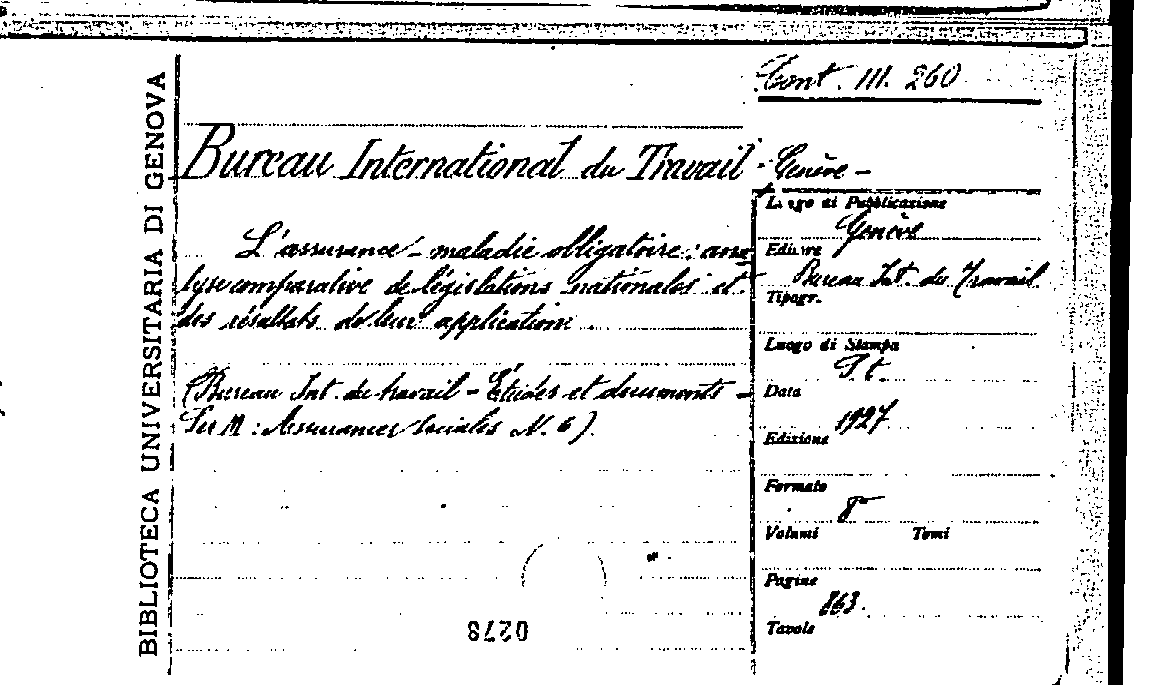 BIBLIOTECA UNIVERSITARIA DI GENOVA
Cont. III. 260
Bureau International du Travail - Genève -
L'assurance-maladie obligatoire: ana
lyse comparative de législations nationales et
des résultats de leur application.
(Bureau Int. du travail - Études et documents -
Ser M: Assurances sociales N. 6).
Luogo di Pubblicazione
Genève
Editore
Bureau Int. du Travail
Tipogr.
Luogo di Stampa
Data
1927
Edizione
Formato
8°
Volumi Tomi
Pagine
863.
Tavole
0278